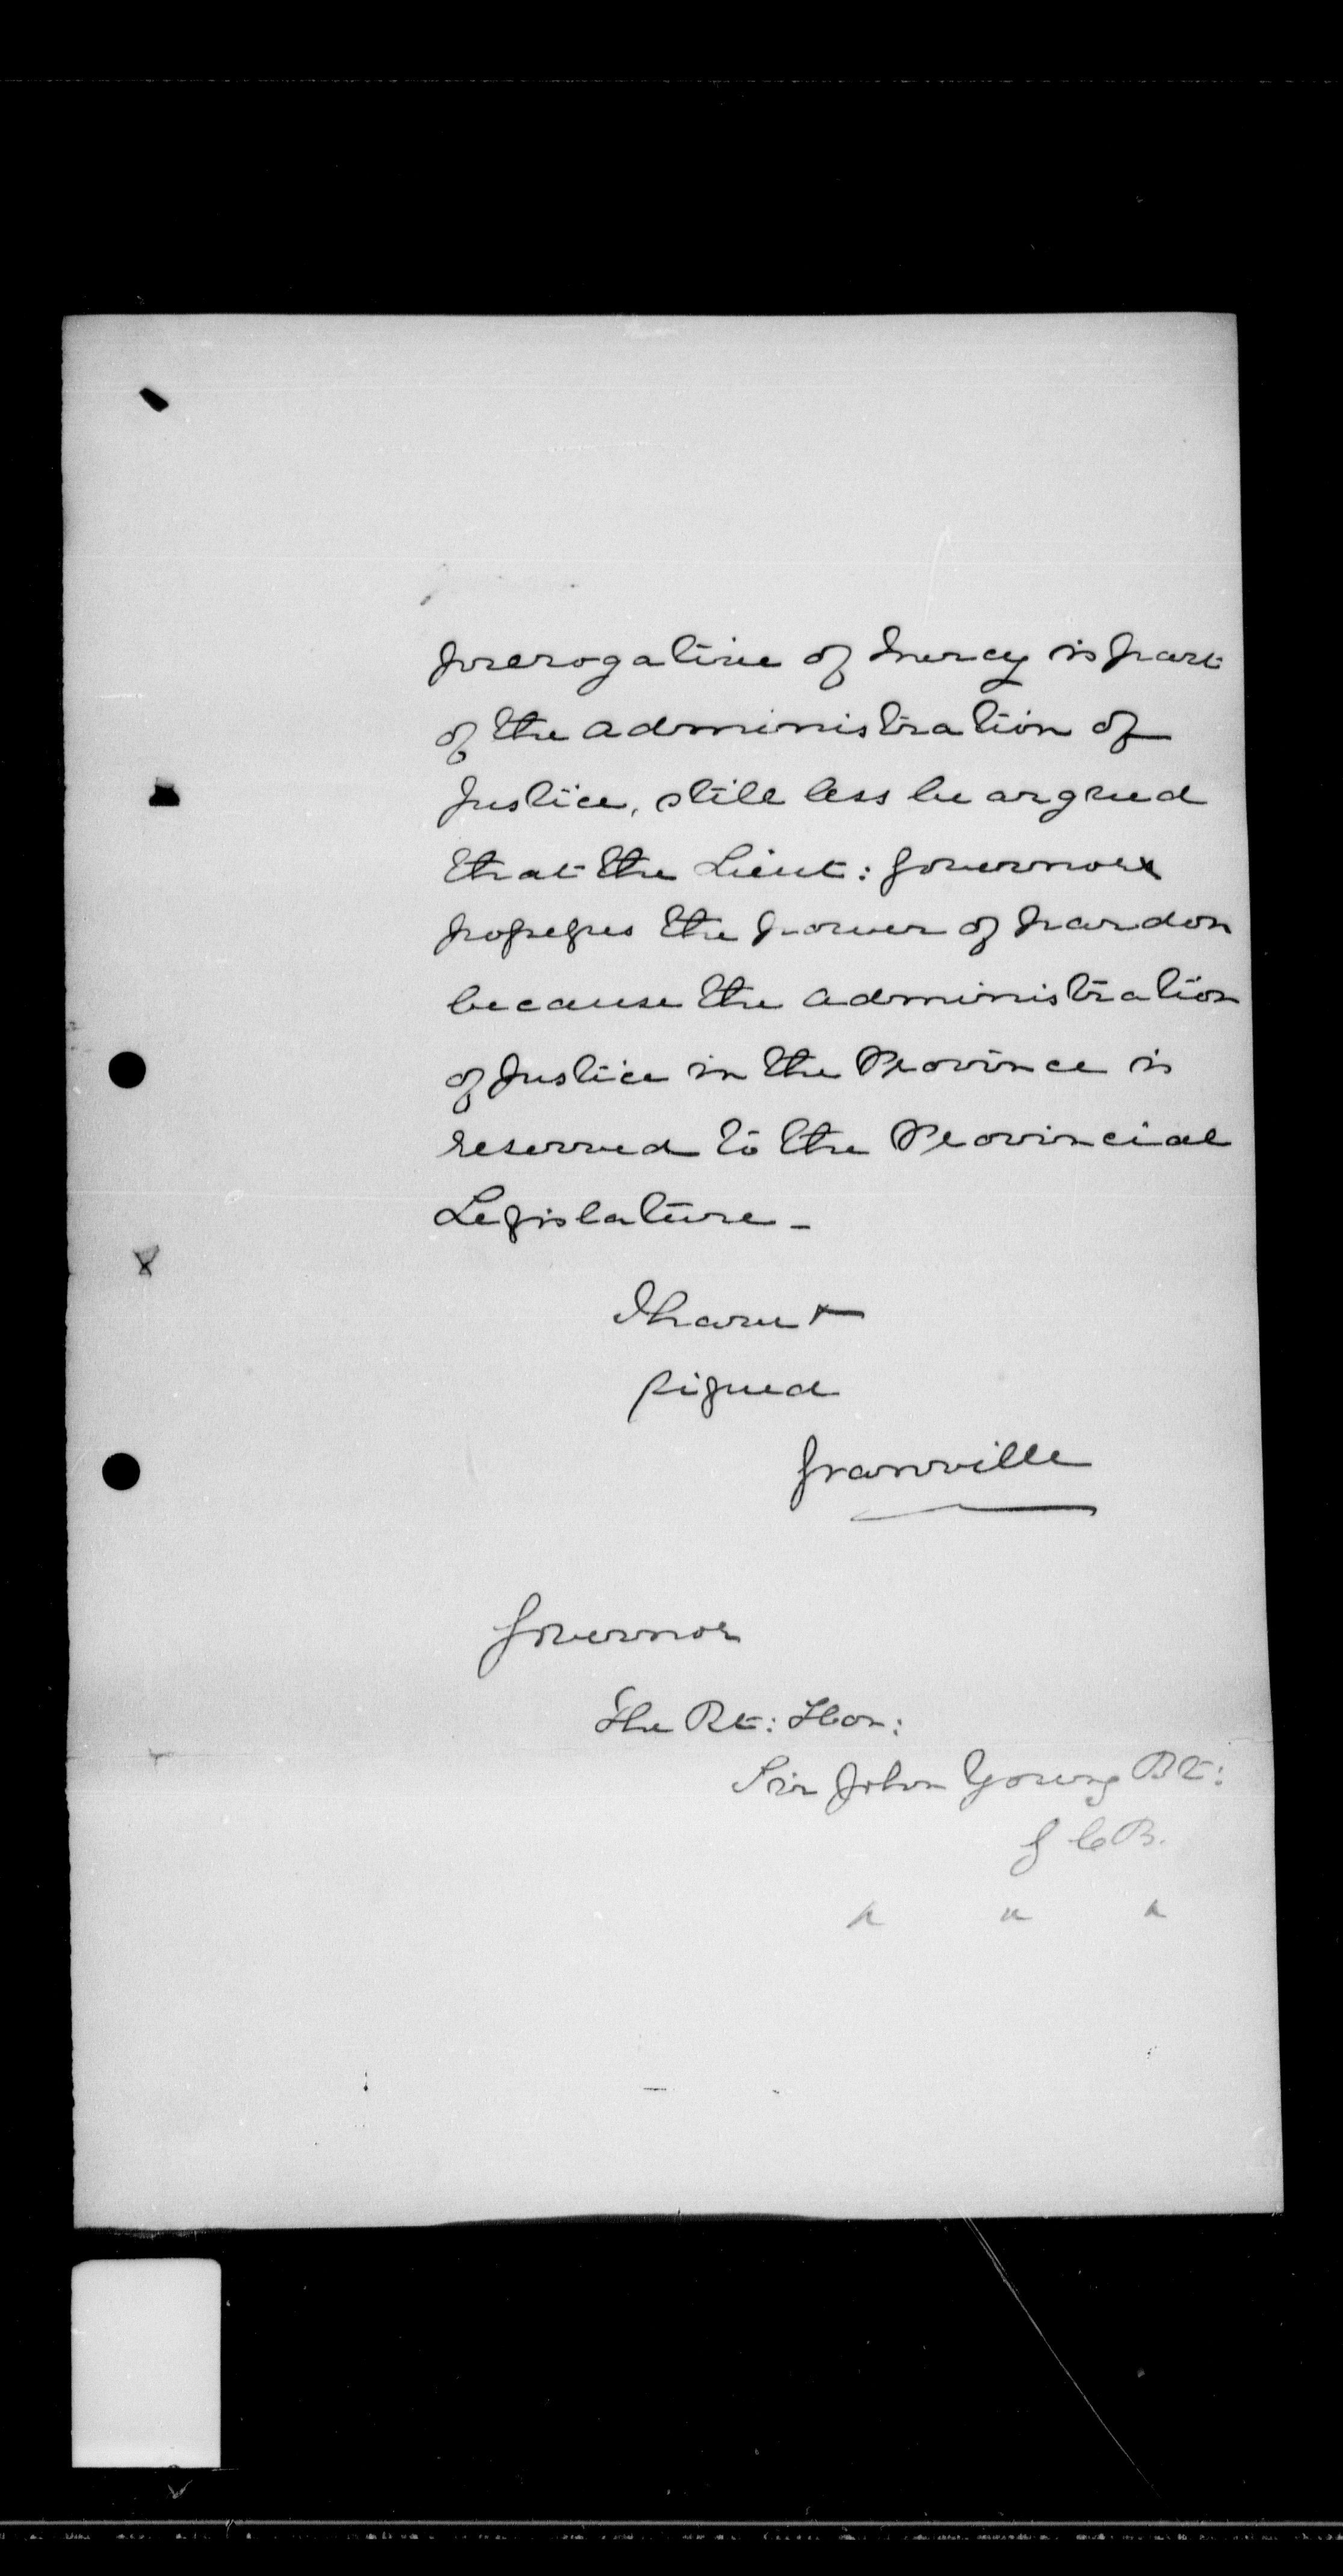 prerogative of mercy is part
of the administration of
Justice, still less be argued
that the Lieut: Governor
possesses the power of pardon
because the administration
of Justice in the Province is
reserved to the Provincial
Legislature -
I have &
signed
Granville
Governor
The Rt: Hon:
Sir John Young Bt:
G C B.
" " "